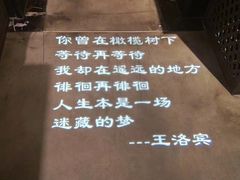 你曾在橄榄树下
等待再等待
我却在遥远的地方
徘徊再徘徊
人生本是一场
迷藏的梦
---王洛宾